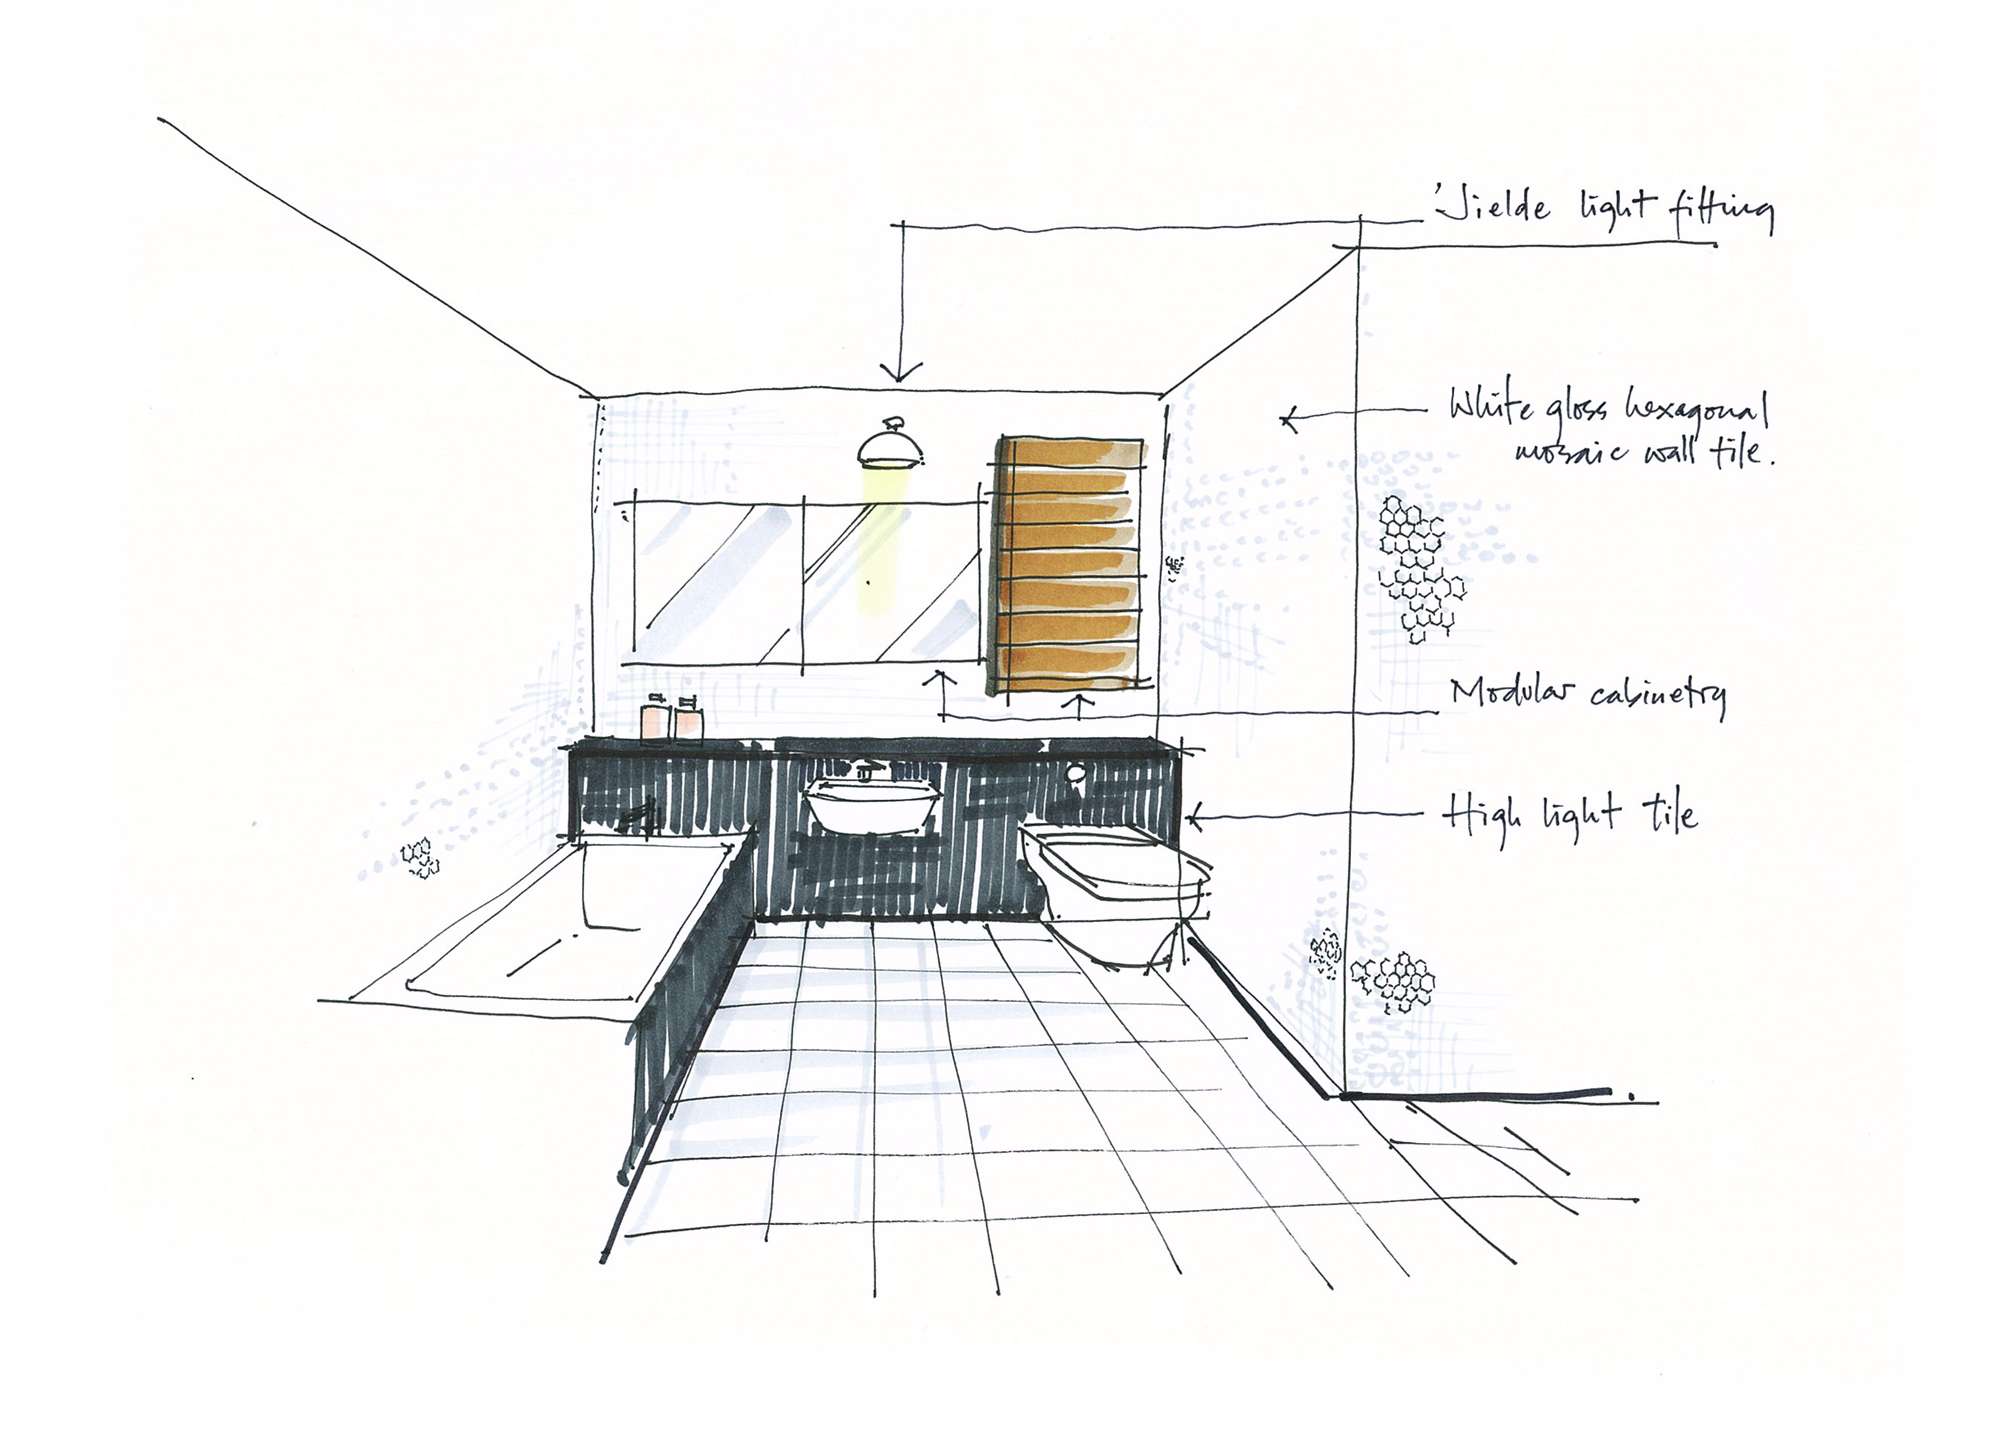 'Jielde light fitting
White gloss hexagonal
mosaic wall tile.
Modular cabinetry
High light tile